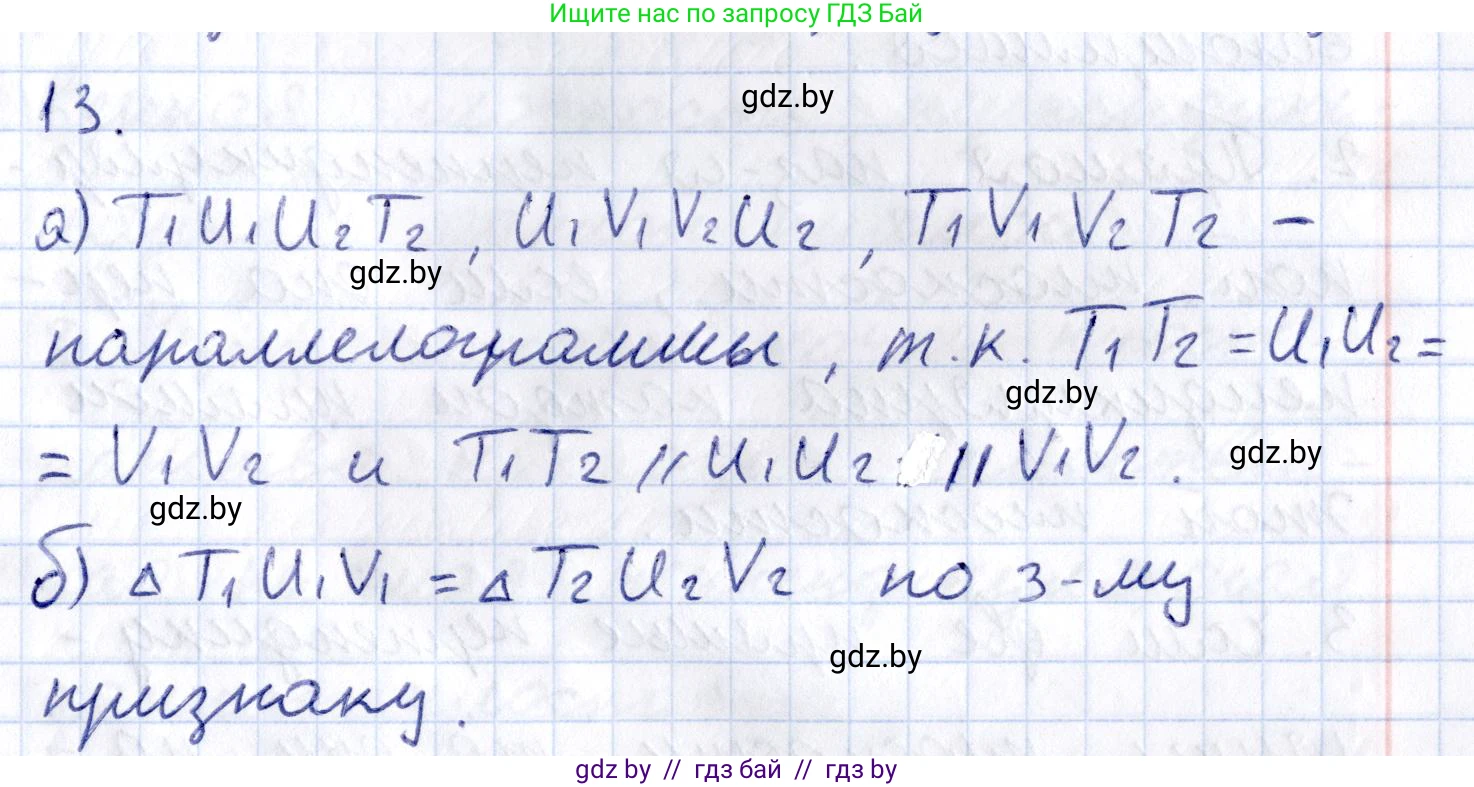 Ищите нас по запросу ГДЗ Бай
13.
gdz.by
а) T₁U₁U₂T₂, U₁V₁V₂U₂, T₁V₁V₂T₂ –
gdz.by
параллелограммы, т.к. T₁T₂ = U₁U₂ =
gdz.by
= V₁V₂ и T₁T₂ // U₁U₂ // V₁V₂.
gdz.by
gdz.by
б) Δ T₁U₁V₁ = Δ T₂U₂V₂ по 3-му
gdz.by
признаку.
gdz by // гдз бай // гдз by